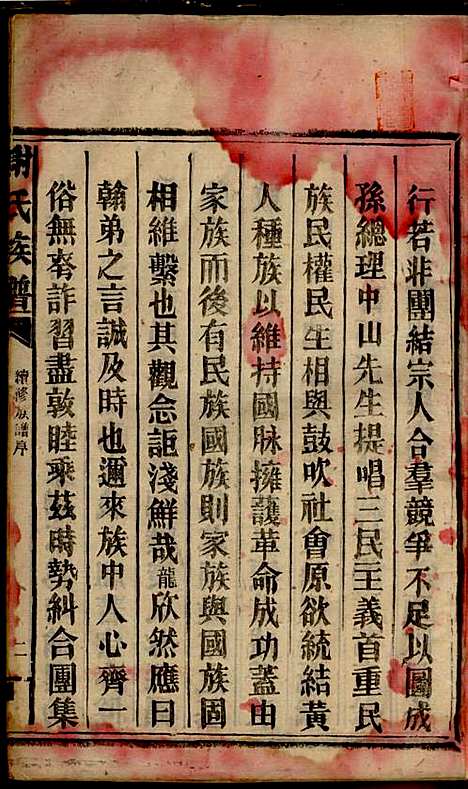 行若非團結宗人合羣競爭不足以圖成
孫總理中山先生提唱三民主義首重民
族民權民生相與鼓吹社會原欲統結黃
人種族以維持國脉擁護革命成功蓋由
家族而後有民族國族則家族與國族固
相維繫也其觀念詎淺鮮哉龍欣然應曰
翰弟之言誠及時也邇來族中人心齊一
俗無奔詐習盡敦睦乘茲時勢糾合團集
謝氏族譜
續修族譜序